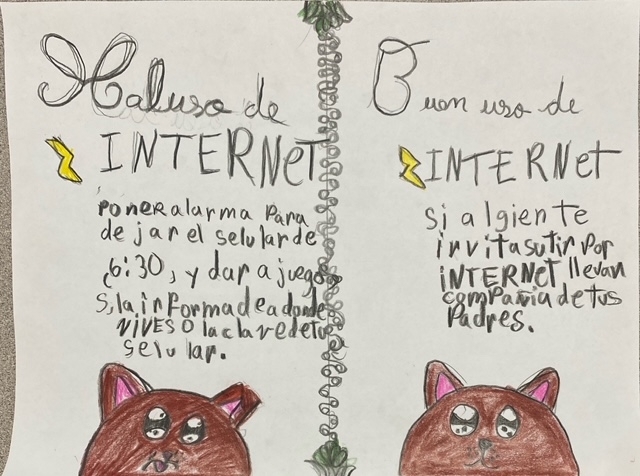 Maluso de
INTERNET
Poner alarma Para
dejar el selular de
6:30, y dar a juegos
s, la informadea donde
VIVES O la clave de tu
selular.
Buon uso de
INTERNET
si algiente
invita sutir por
iNTERNET llevan
compañia de tus
Padres.